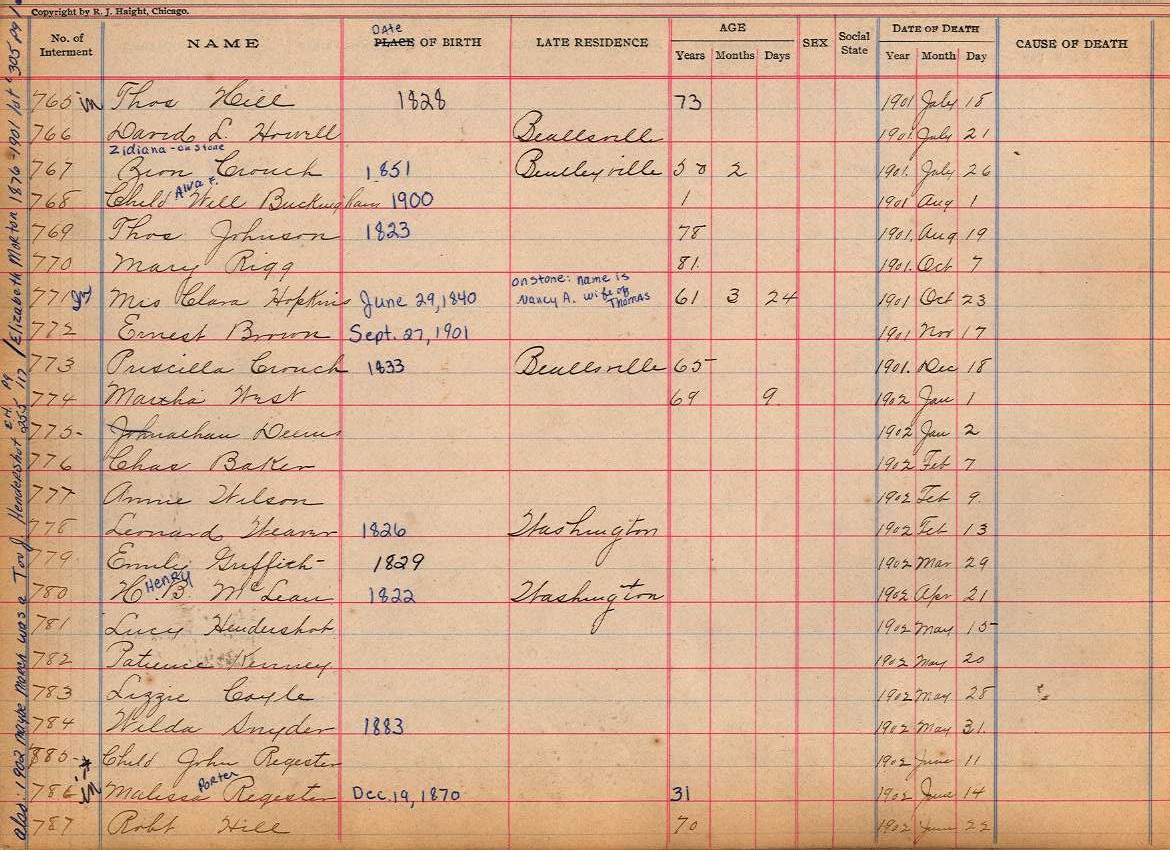 Copyright by R. J. Haight, Chicago.
No. of Interment NAME Date PLACE OF BIRTH LATE RESIDENCE AGE Years Months Days SEX Social State DATE OF DEATH Year Month Day CAUSE OF DEATH
765 in Thos Hill 1828 73 1901 July 15
766 David L. Howell Beallsville 1901 July 21
Zidiana - on stone
767 Zion Crouch 1851 Beulleyville 50 2 1901 July 26
768 Child Alva F. Will Buckingham 1900 1 1901 Aug 1
769 Thos Johnson 1823 78 1901 Aug 19
770 Mary Rigg 81 1901 Oct 7
771 in Mrs Clara Hopkins June 29, 1840 on stone: name is Nancy A. wife of Thomas 61 3 24 1901 Oct 23
772 Ernest Brown Sept. 27, 1901 1901 Nov 17
773 Priscilla Crouch 1833 Beallsville 65 1901 Dec 18
774 Martha West 69 9 1902 Jan 1
775 Johnathan Deems 1902 Jan 2
776 Chas Baker 1902 Feb 7
777 Annie Wilson 1902 Feb 9
778 Leonard Weaver 1826 Washington 1902 Feb 13
779 Emily Griffith 1829 1902 Mar 29
780 H. Henry B. McLean 1822 Washington 1902 Apr 21
781 Lucy Hendershot 1902 May 15
782 Patience Kenney 1902 May 20
783 Lizzie Coyle 1902 May 28
784 Wilda Snyder 1883 1902 May 31
885 Child John Regester 1902 June 11
786 in Malissa Porter Regester Dec. 19, 1870 31 1902 June 14
787 Robt Hill 70 1902 June 22
also: 1902 maybe March was a Tom J. Hendershot pg 117 / Elizabeth Morton 1876-1901 lot 305 pg